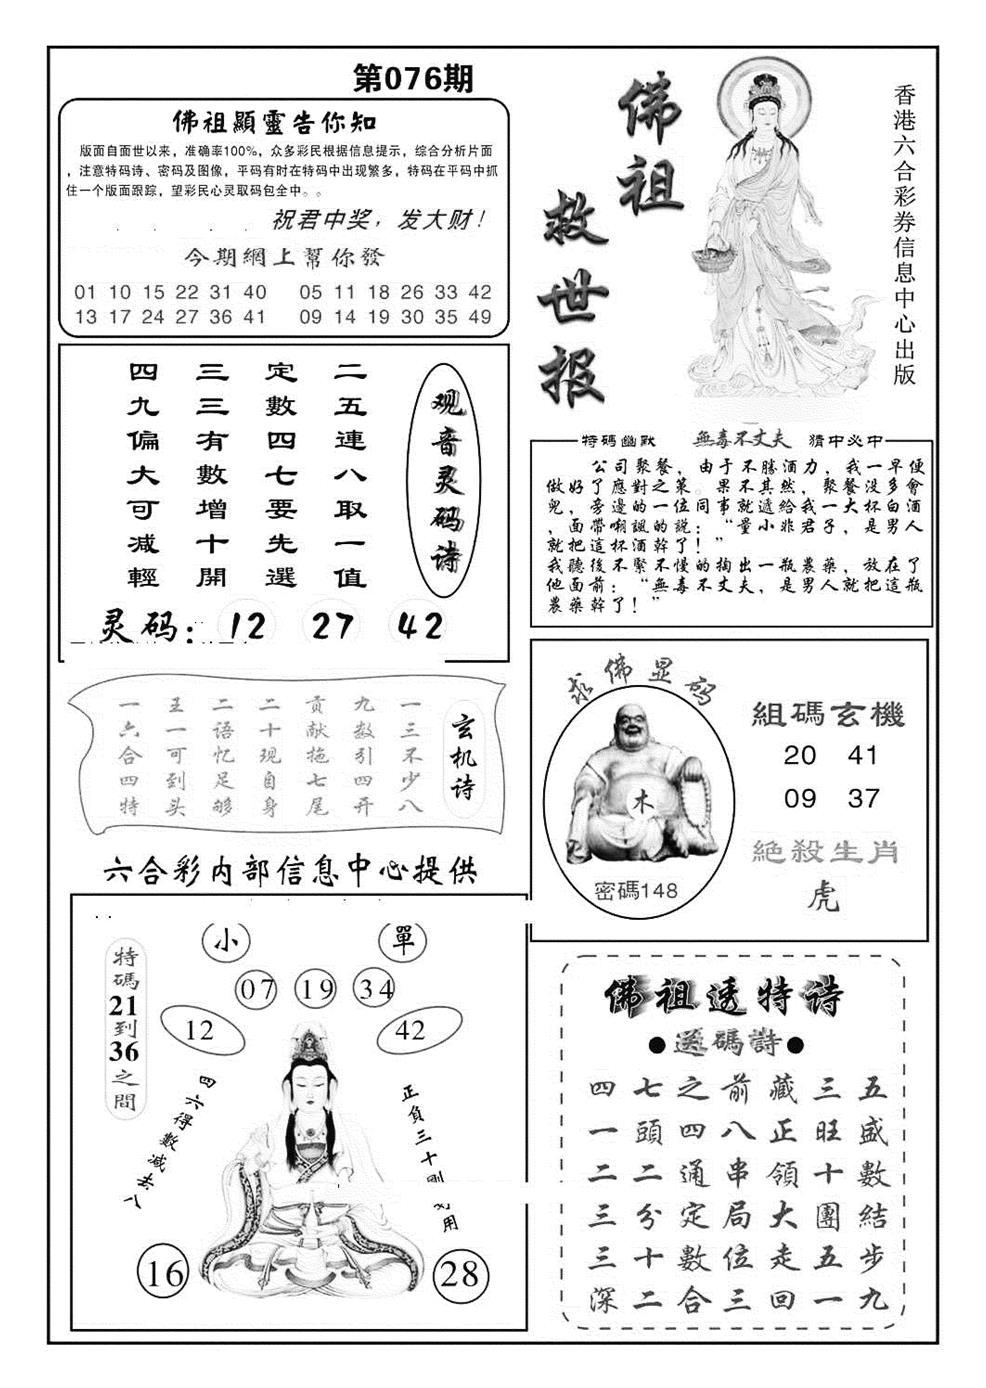 第076期
佛祖顯靈告你知
版面自面世以来，准确率100%，众多彩民根据信息提示，综合分析片面
，注意特码诗、密码及图像，平码有时在特码中出现繁多，特码在平码中抓
住一个版面跟踪，望彩民心灵取码包全中。。
祝君中奖，发大财！
今期網上幫你發
01 10 15 22 31 40 05 11 18 26 33 42
13 17 24 27 36 41 09 14 19 30 35 49
佛祖
救世报
香港六合彩券信息中心出版
观音灵码诗
二五連八取一值
定數四七要先選
三三有數增十開
四九偏大可减輕
灵码：12 27 42
特碼幽默 無毒不丈夫 猜中必中
公司聚餐，由于不勝酒力，我一早便
做好了應對之策。果不其然，聚餐没多會
兒，旁邊的一位同事就遞給我一大杯白酒
，面帶嘲諷的説：“量小非君子，是男人
就把這杯酒幹了！”
我聽後不緊不慢的掏出一瓶農藥，放在了
他面前：“無毒不丈夫，是男人就把這瓶
農藥幹了！”
玄机诗
一三不少八
九数引四开
贡献拖七尾
二十现自身
二语忆足够
王一可到头
一六合四特
六合彩内部信息中心提供
求佛显码
木
密碼148
組碼玄機
20 41
09 37
絶殺生肖
虎
小 單
07 19 34
12 42
特碼21到36之間
四六得數减去八
正負三十剛好用
16 28
佛祖透特诗
●送碼詩●
五盛數結步九
三旺十團五一
藏正領大走回
前八串局位三
之四通定數合
七頭二分十二
四一二三三深